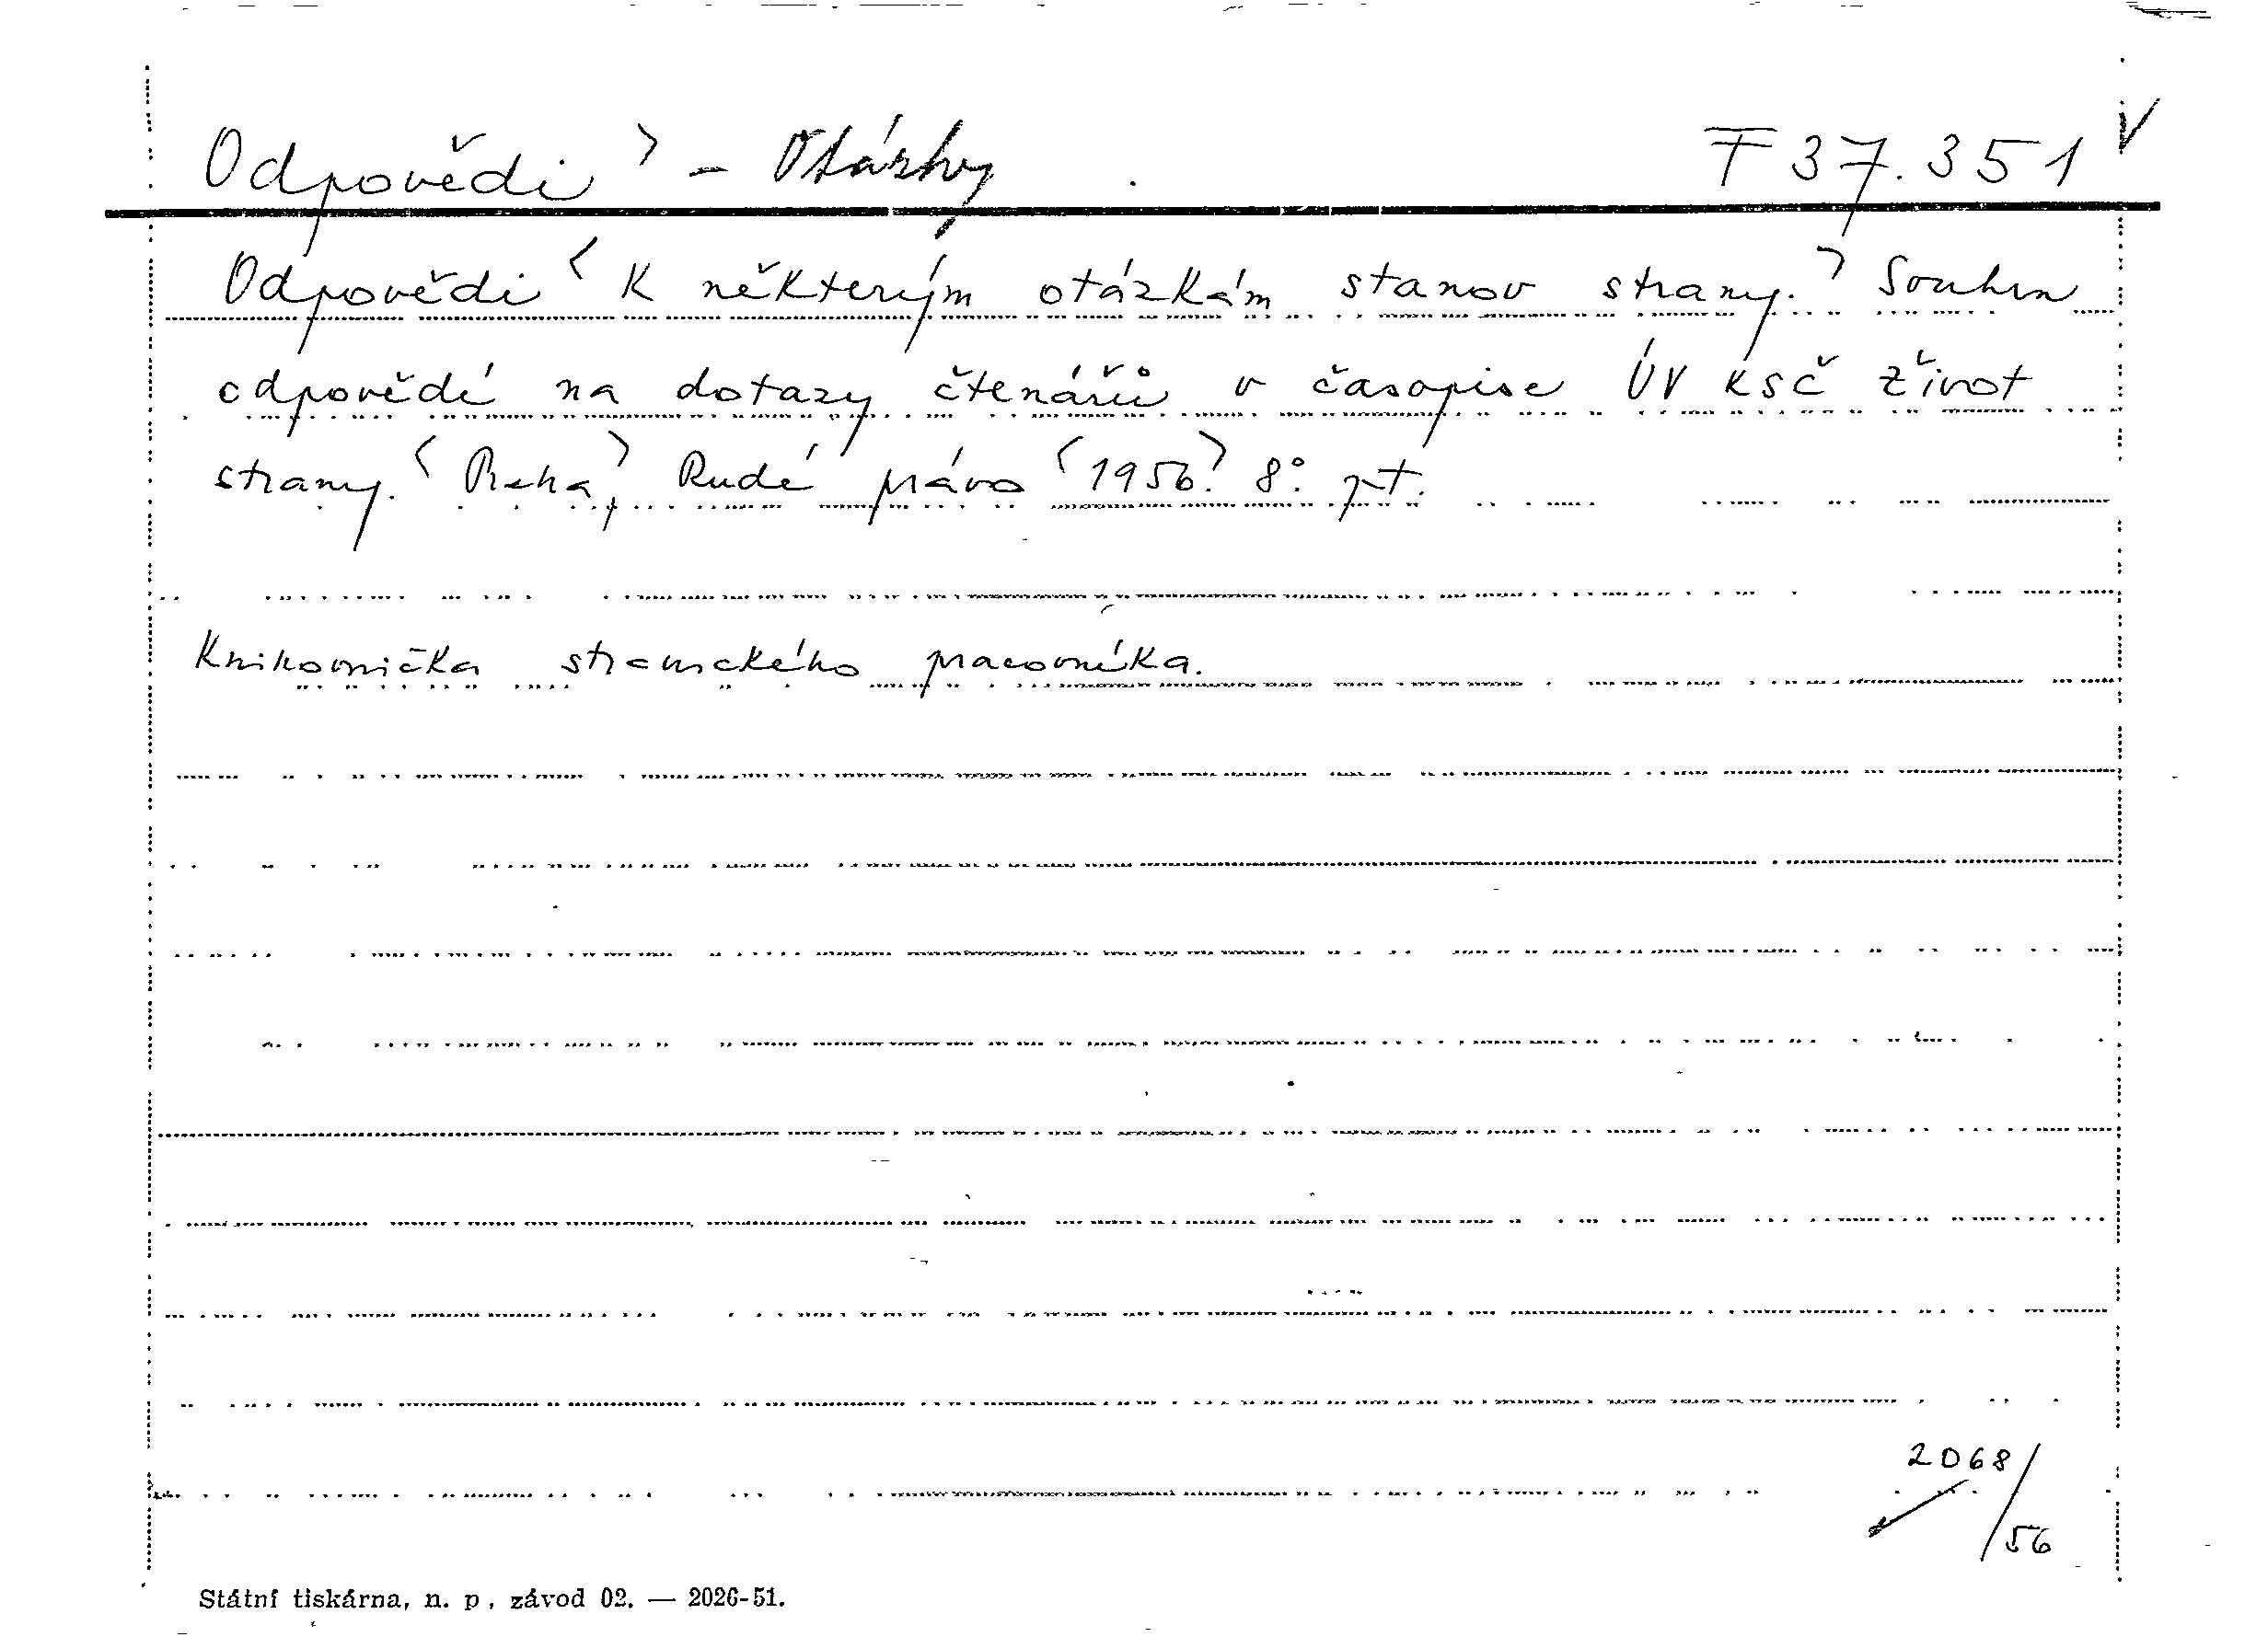 Odpovědi > - Otázky F 37.351 V
Odpovědi < K některým otázkám stanov strany. > Souhrn
odpovědí na dotazy čtenářů v časopise ÚV KSČ Život
strany. < Praha, > Rudé právo < 1956. > 8°. p.t.
Knihovnička stranického pracovníka.
2068/
/56
Státní tiskárna, n. p., závod 02. — 2026-51.